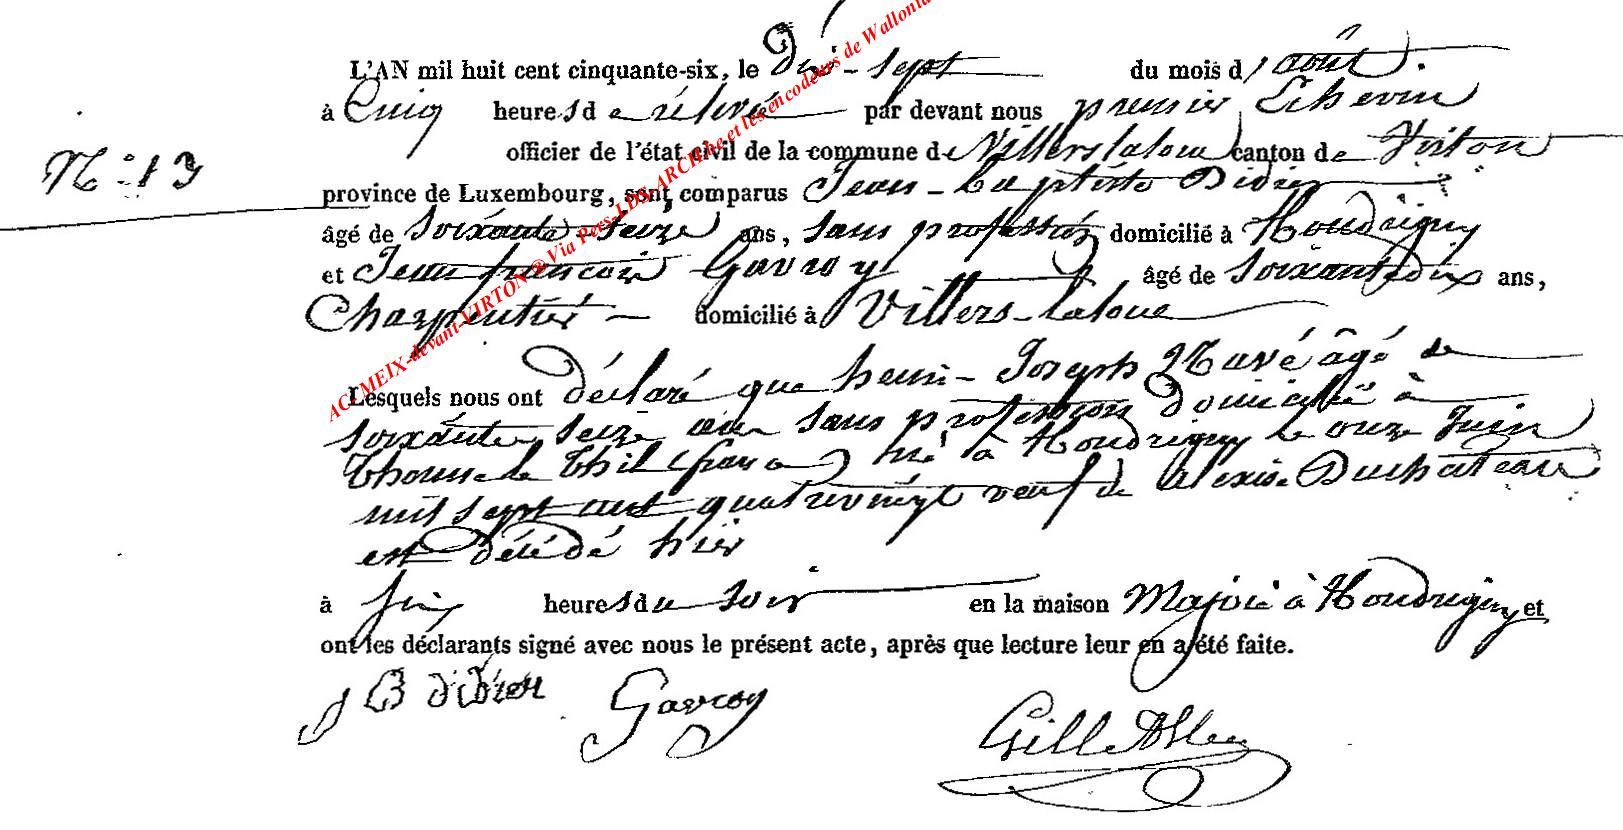 L'AN mil huit cent cinquante-six, le Dix-sept du mois d'août.
à Cinq heures de rélevée par devant nous premier Echevin
N° 13
officier de l'état civil de la commune de Villerslaloue canton de Virton
province de Luxembourg, sont comparus Jean-Baptiste Didier
âgé de soixante-seize ans, sans profession domicilié à Houdrigny
et Jean françois Gavroy âgé de soixante dix ans,
Charpentier domicilié à Villers-laloue
Lesquels nous ont déclaré que henri-Joseph Mavé âgé de
soixante seize ans sans profession domicilié à
Thonne le Thil (france) né à Houdrigny le onze Juin
mil sept cent quatrevingt veuf de Alexise Duchateau
est décédé hier
à six heures du soir en la maison à Houdrigny et
ont les déclarants signé avec nous le présent acte, après que lecture leur en a été faite.
J B didier Gavroy
AC-MEIX-devant-VIRTON ® Via Pers-LDS-ARCHbe et les encodeurs de Wallonie